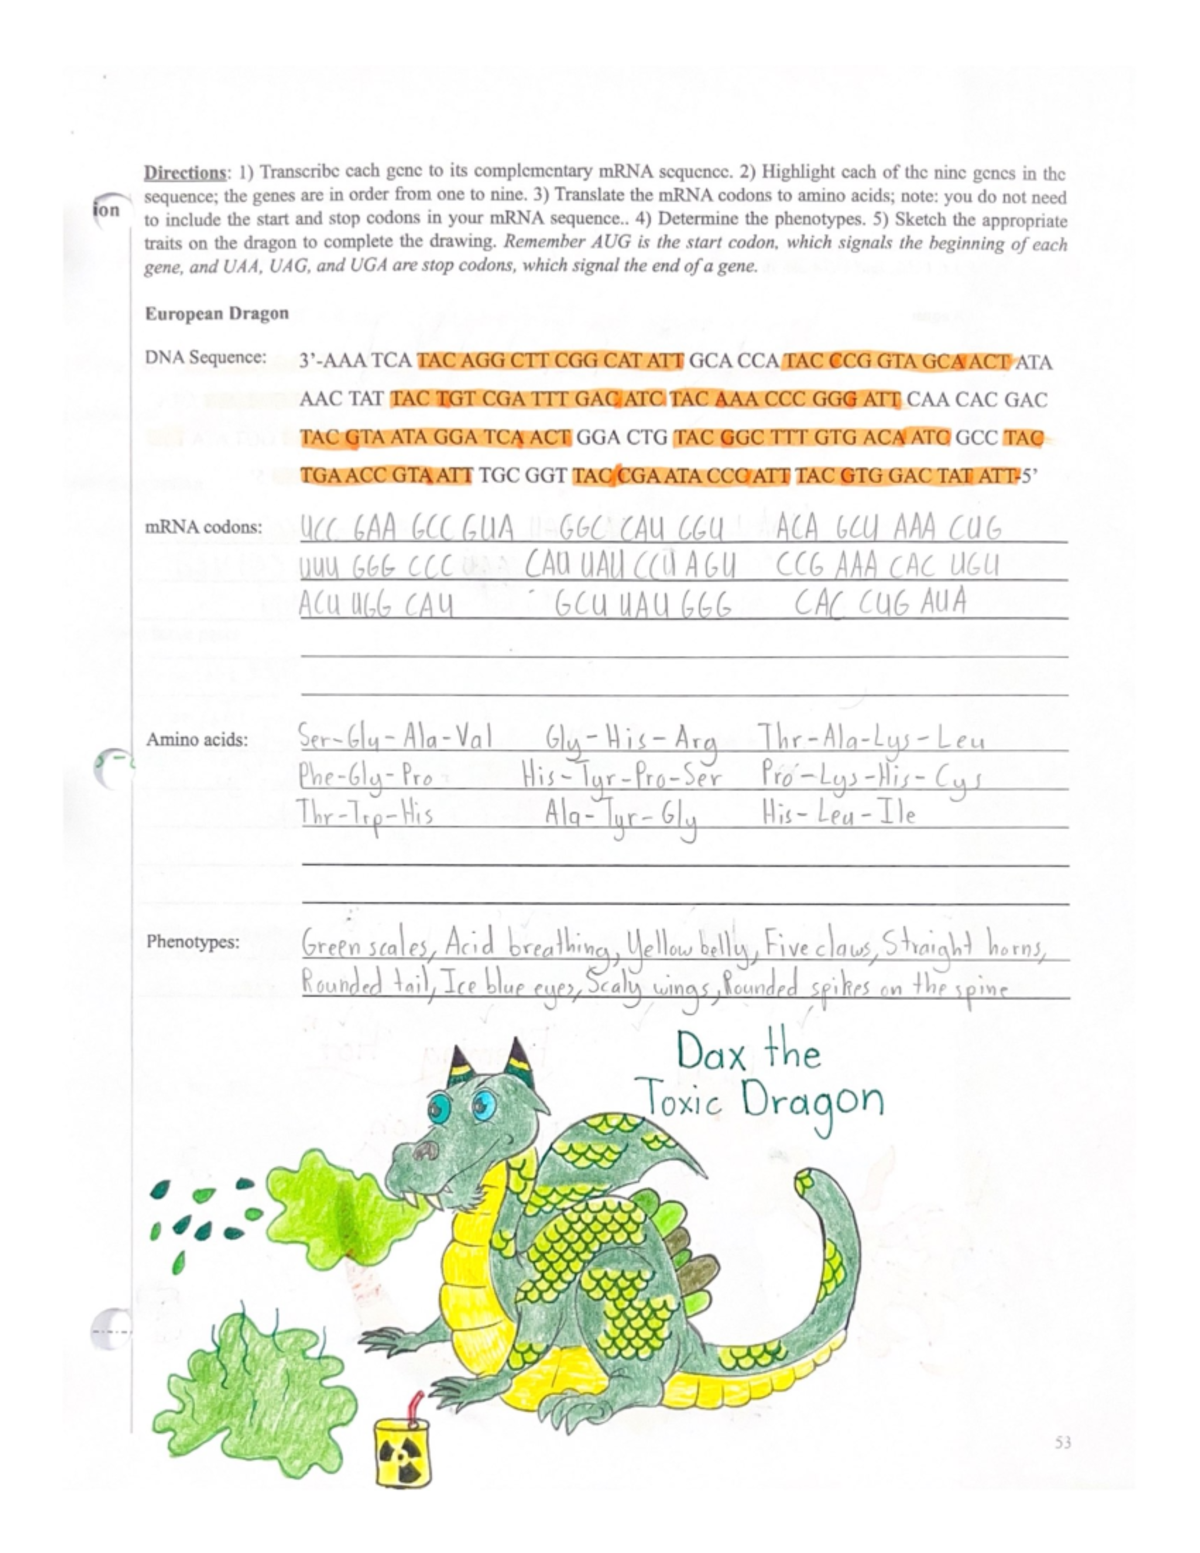 Directions: 1) Transcribe each gene to its complementary mRNA sequence. 2) Highlight each of the nine genes in the
sequence; the genes are in order from one to nine. 3) Translate the mRNA codons to amino acids; note: you do not need
ion
to include the start and stop codons in your mRNA sequence.. 4) Determine the phenotypes. 5) Sketch the appropriate
traits on the dragon to complete the drawing. Remember AUG is the start codon, which signals the beginning of each
gene, and UAA, UAG, and UGA are stop codons, which signal the end of a gene.
European Dragon
DNA Sequence: 3'-AAA TCA TAC AGG CTT CGG CAT ATT GCA CCA TAC CCG GTA GCA ACT ATA
AAC TAT TAC TGT CGA TTT GAC ATC TAC AAA CCC GGG ATT CAA CAC GAC
TAC GTA ATA GGA TCA ACT GGA CTG TAC GGC TTT GTG ACA ATC GCC TAC
TGA ACC GTA ATT TGC GGT TAC CGA ATA CCC ATT TAC GTG GAC TAT ATT-5'
mRNA codons: UCC GAA GCC GUA GGC CAU CGU ACA GCU AAA CUG
UUU GGG CCC CAU UAU CCU AGU CCG AAA CAC UGU
ACU UGG CAU GCU UAU GGG CAC CUG AUA
Amino acids: Ser-Gly-Ala-Val Gly-His-Arg Thr-Ala-Lys-Leu
Phe-Gly-Pro His-Tyr-Pro-Ser Pro-Lys-His-Cys
Thr-Trp-His Ala-Tyr-Gly His-Leu-Ile
Phenotypes: Green scales, Acid breathing, Yellow belly, Five claws, Straight horns,
Rounded tail, Ice blue eyes, Scaly wings, Rounded spikes on the spine
Dax the
Toxic Dragon
53